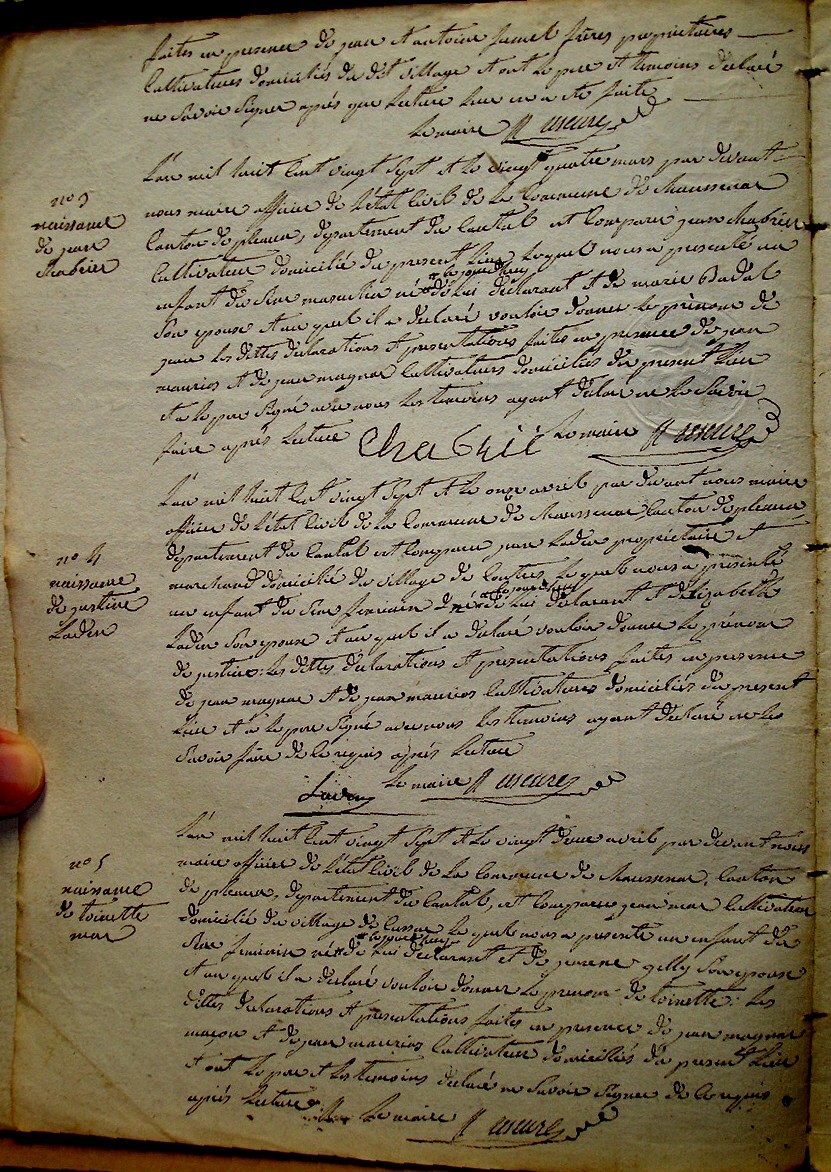 faites en presence de jean et antoine frères proprietaires
Cultivateurs domiciliés du dit village et ont le pere et temoins declaré
ne savoir signer après que lecture leur en a été faite
Le maire
L'an mil huit cent vingt sept et le vingt quatre mars par devant
nous maire officier de l'état civil de la Commune de
Canton de pleaux, departement du Cantal est Comparu jean Chabrier
Cultivateur domicilié du present lieu Lequel nous a presenté un
le jour d'huy
enfant du sexe masculin né de lui declarant et de marie Badal
Son epouse et au quel il a declaré vouloir donner le prénom de
jean les dittes declarations et presentations faites en presence de jean
maurios et de jean magnac Cultivateurs domiciliés du present lieu
et a le pere signé avec nous les temoins ayant declaré ne le savoir
faire après lecture Le maire
n° 3
naissance
de jean
Chabrier
L'an mil huit cent vingt sept et le onze avril par devant nous maire
officier de l'état civil de la Commune de Canton de pleaux
departement du Cantal est Comparu jean Lader propriétaire et
marchand domicilié du village de Lequel nous a presenté
le jour d'huy
un enfant du sexe feminin né de lui declarant et d'elizabeth
Lader Son epouse et au quel il a declaré vouloir donner le prénom
de justine: les dittes declarations et presentations faites en presence
de jean magnac et de jean maurios Cultivateurs domiciliés du present
lieu et a le pere signé avec nous les temoins ayant declaré ne le
savoir faire de ce requis après lecture
Le maire
n° 4
naissance
de justine
Lader
L'an mil huit cent vingt sept et le vingt deux avril par devant nous
maire officier de l'état civil de la Commune de Canton
de pleaux, departement du Cantal, est Comparu jean mar Cultivateur
domicilié du village de Lequel nous a presenté un enfant du
le jour d'huy
sexe feminin né de lui declarant et de gilly Son epouse
et au quel il a declaré vouloir donner le prenom de toinette: les
dittes declarations et presentations faites en presence de jean magnac
maçon et de jean maurios Cultivateur domiciliés du present lieu
et ont le pere et les temoins declaré ne savoir signer de ce requis
après lecture Le maire
n° 5
naissance
de toinette
mar